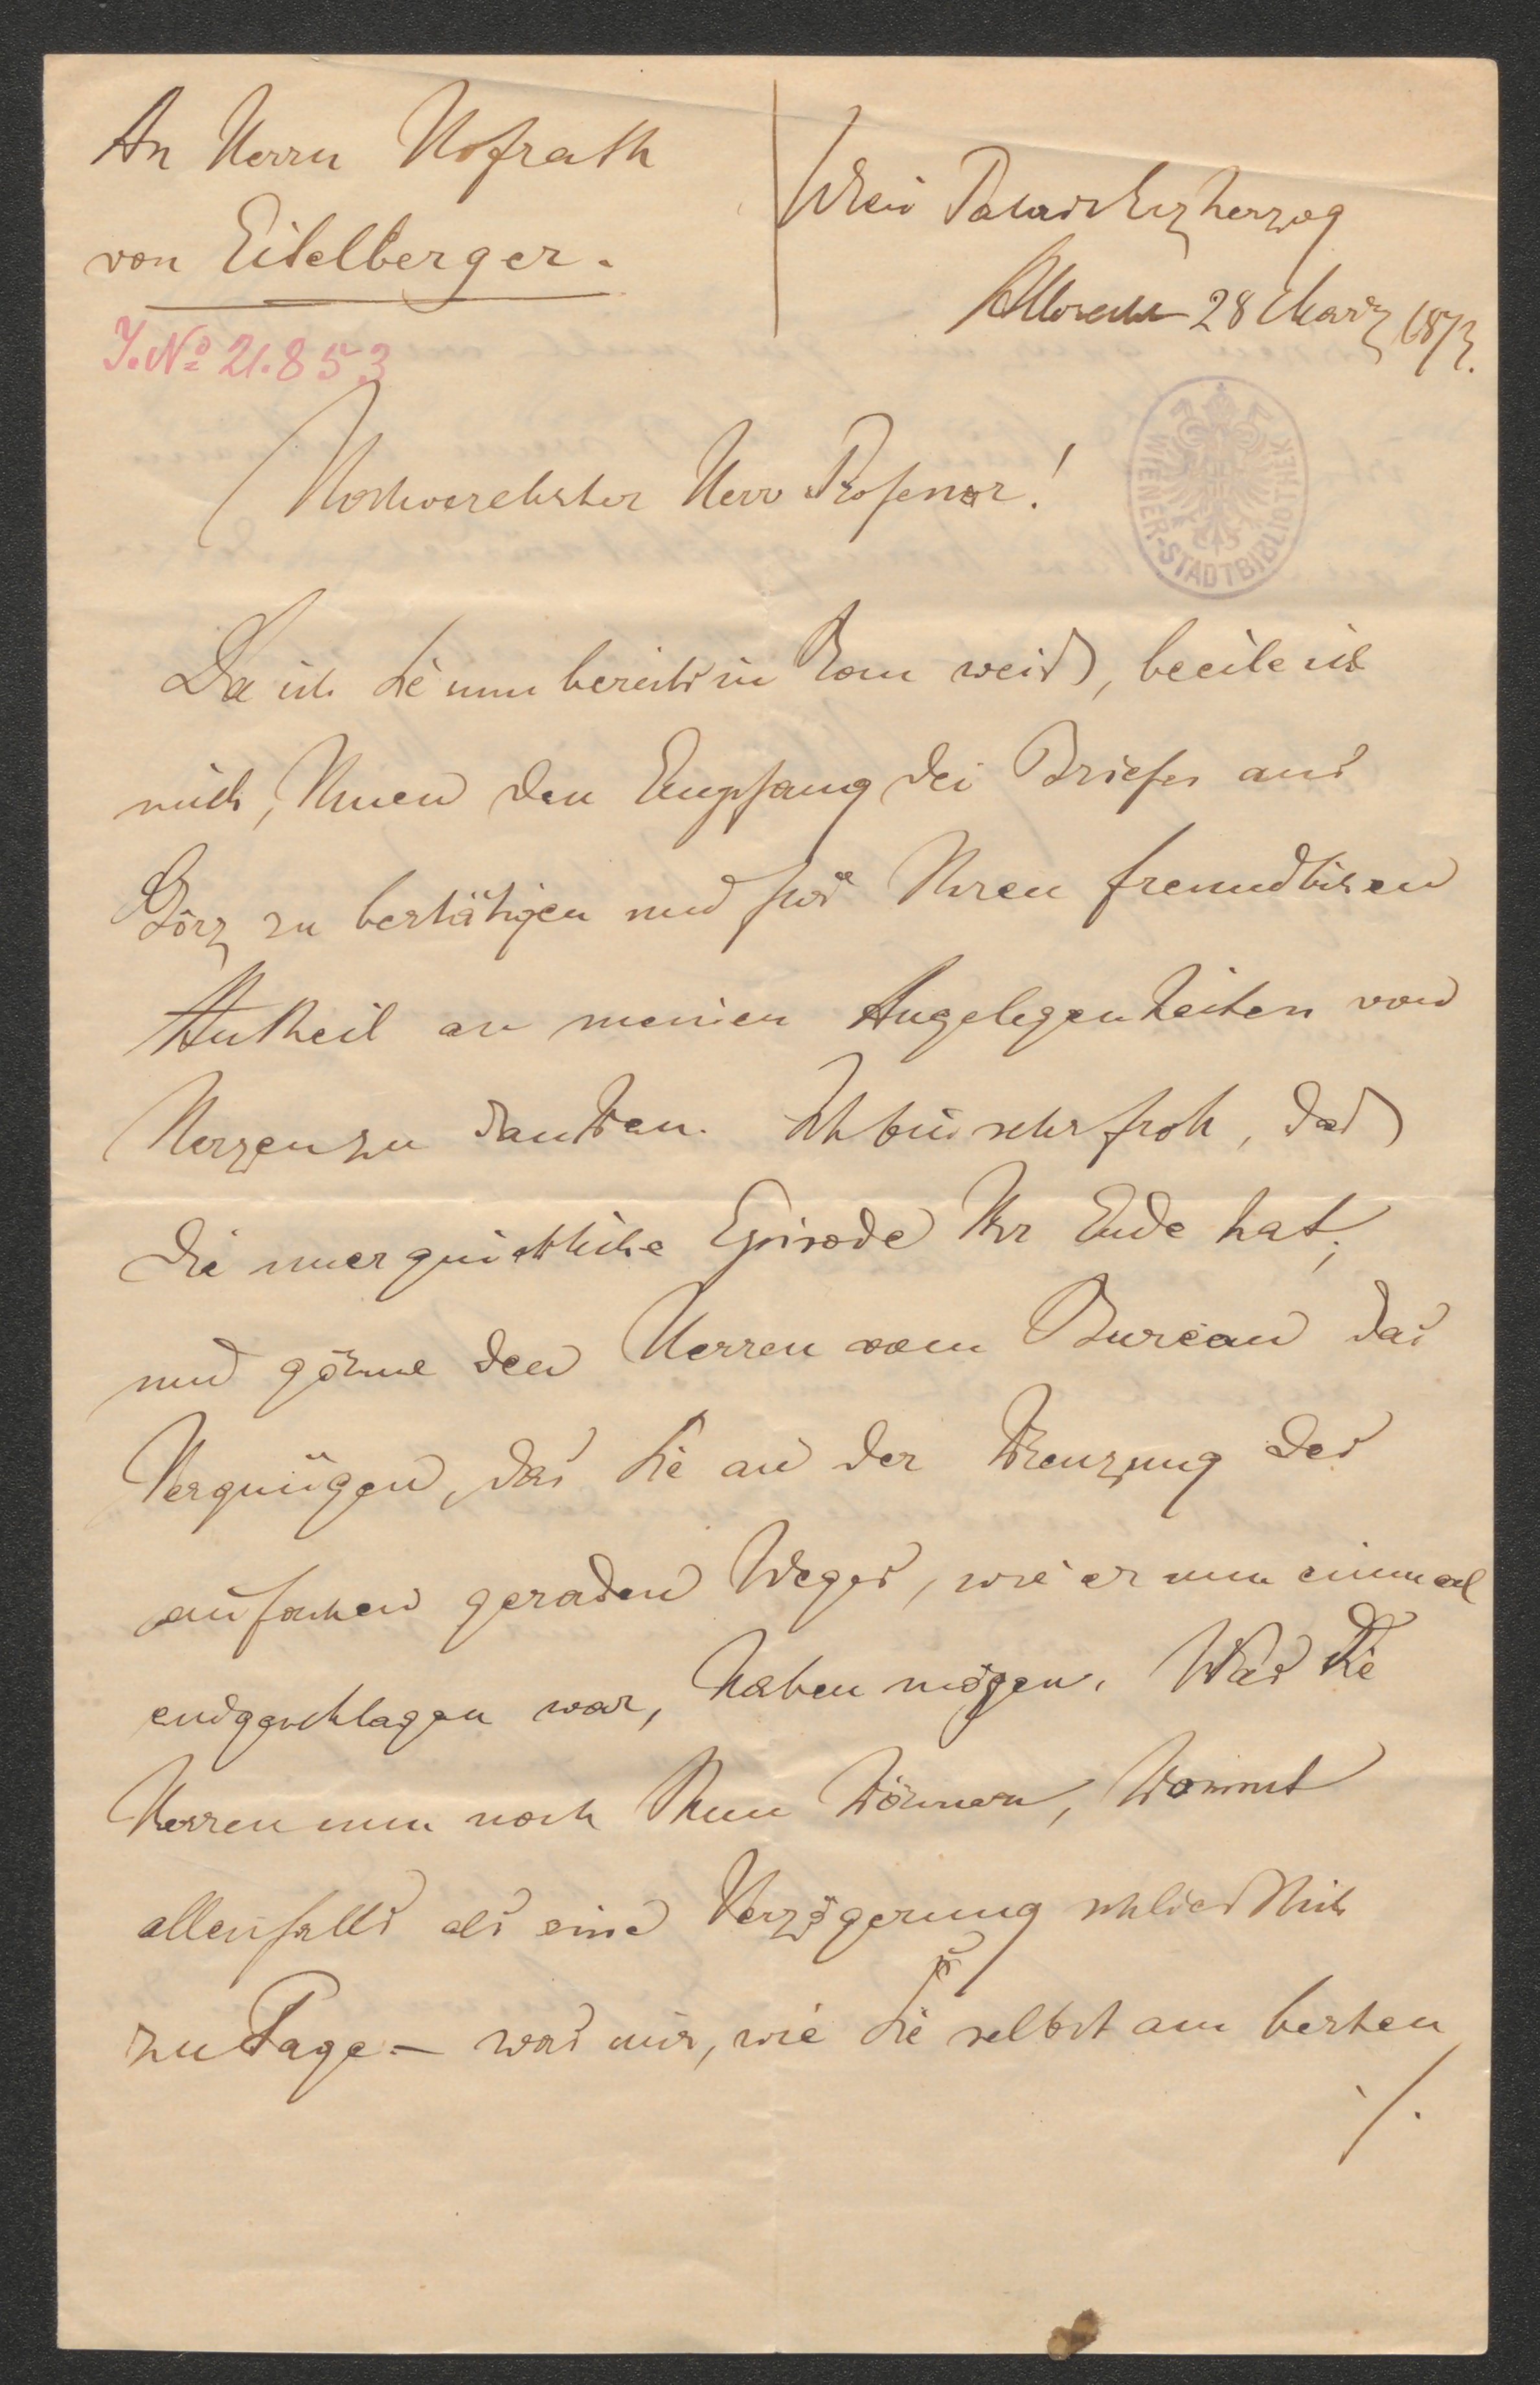 An Herrn Hofrath
von Eitelberger.
J. Nº 21.853
Wien Palais Erzherzog
Albrecht 28 März 1873.
WIENER-STADTBIBLIOTHEK
Hochverehrter Herr Professor!
Da ich Sie nun bereits in Rom weiß, beeile ich
mich, Ihnen den Empfang des Briefes aus
Görz zu bestätigen und für Ihren freundlichen
Antheil an meinen Angelegenheiten von
Herzen zu danken. Ich bin sehr froh, daß
die unerquickliche Episode Ihr Ende hat,
und gönne den Herren vom Bureau das
Vergnügen, das Sie an der Kreuzung des
einfachen geraden Weges, wie er nun einmal
eingeschlagen war, haben mögen. Was die
Herren nun noch thun können, kommt
allenfalls als eine Verzögerung schließlich
zu Tage – was mir, wie Sie selbst am besten
./.